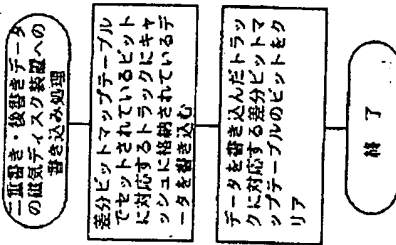 二重書き・後書きデータ
の磁気ディスク装置への
書き込み処理
差分ビットマップテーブル
でセットされているビット
に対応するトラックにキャ
ッシュに格納されているデ
ータを書き込む
データを書き込んだトラッ
クに対応する差分ビットマ
ップテーブルのビットをク
リア
終了